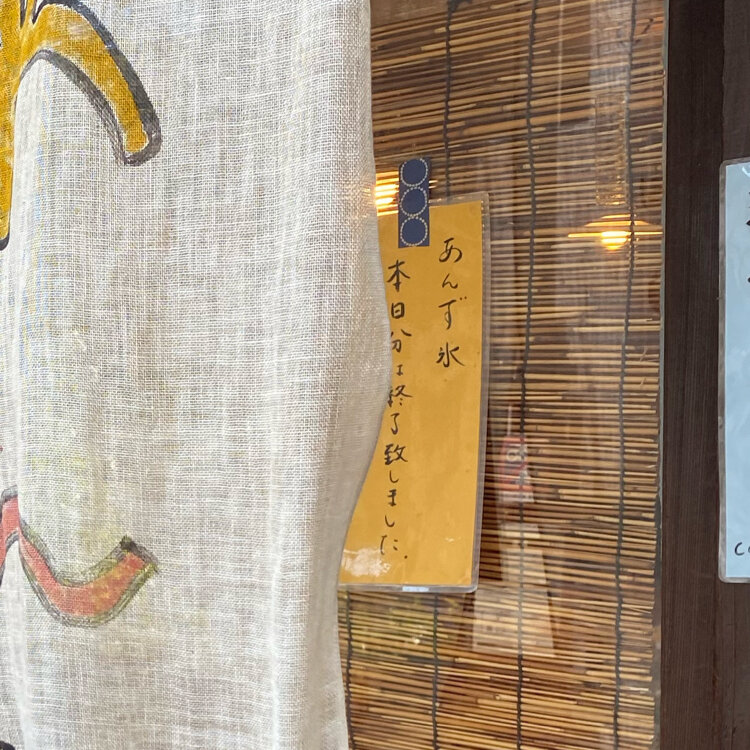 あんず氷
本日分は終了致しました。